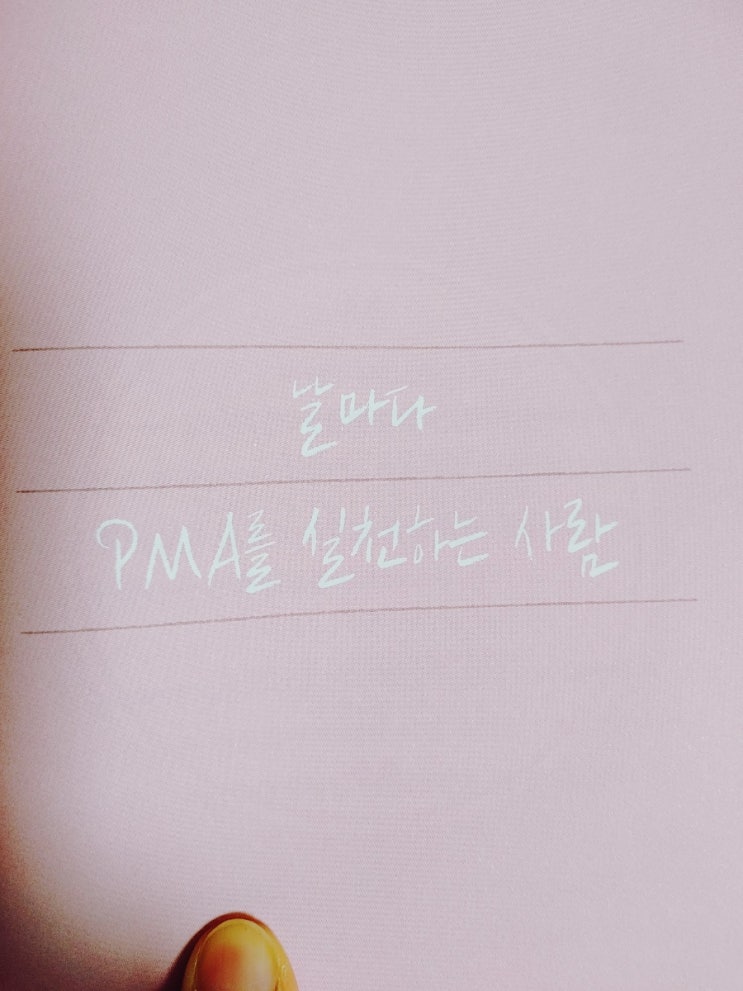 날마다
PMA를 실천하는 사람